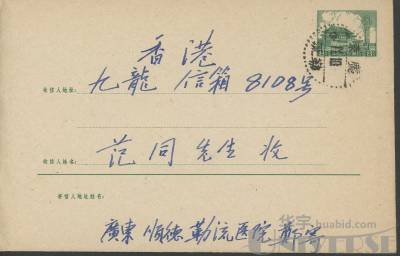 香港
收信人地址：九龍信箱8108号
收信人姓名：范同先生收
寄信人地址姓名：
廣東順德勒流医院
华宇 huabid.com
UNIVERSE